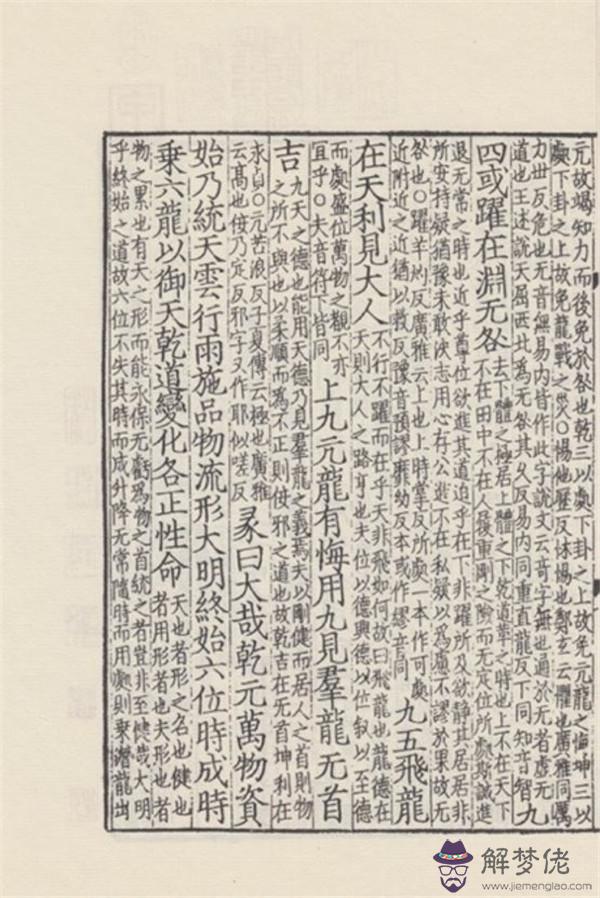 元故竭知力而後免於咎也乾三以處下卦之上故免亢龍之悔坤三以
處下卦之上故免龍戰之災○惕他歷反怵惕也鄭玄云懼也廣雅同厲
力世反危也无音無易內皆作此字說文云奇字無也通於无者虛无
道也王述說天屈西北爲无咎其久反易內同重直龍反下同知音智
九
四或躍在淵无咎
去下體之極居上體之下乾道革之時也上不在天下
不在田中不在人履重剛之險而无定位所處斯誠進
退无常之時也近乎尊位欲進其道迫乎在下非躍所及欲靜其居居非
所安持疑猶豫未敢決志用心存公進不在私疑以爲慮不謬於果故无
咎也○躍羊灼反廣雅云上也上時掌反所處一本作可處
近附近之近猶以救反豫音預謬靡幼反本或作繆音同
九五飛龍
在天利見大人
不行不躍而在乎天非飛如何故曰飛龍也龍德在
天則大人之路亨也夫位以德興德以位敘以至德
而處盛位萬物之觀不亦
宜乎○夫音符下皆同
上九亢龍有悔用九見羣龍无首
吉
九天之德也能用天德乃見羣龍之義焉夫以剛健而居人之首則物
之所不與也以柔順而爲不正則佞邪之道也故乾吉在无首坤利在
永貞○亢苦浪反子夏傳云極也廣雅
云高也佞乃定反邪字又作耶似嗟反
彖曰大哉乾元萬物資
始乃統天雲行雨施品物流形大明終始六位時成時
乘六龍以御天乾道變化各正性命
天也者形之名也健也
者用形者也夫形也者
物之累也有天之形而能永保无虧爲物之首統之者豈非至健哉大明
乎終始之道故六位不失其時而成升降无常隨時而用處則乘潛龍出
解梦佬
www.jiemenglao.com